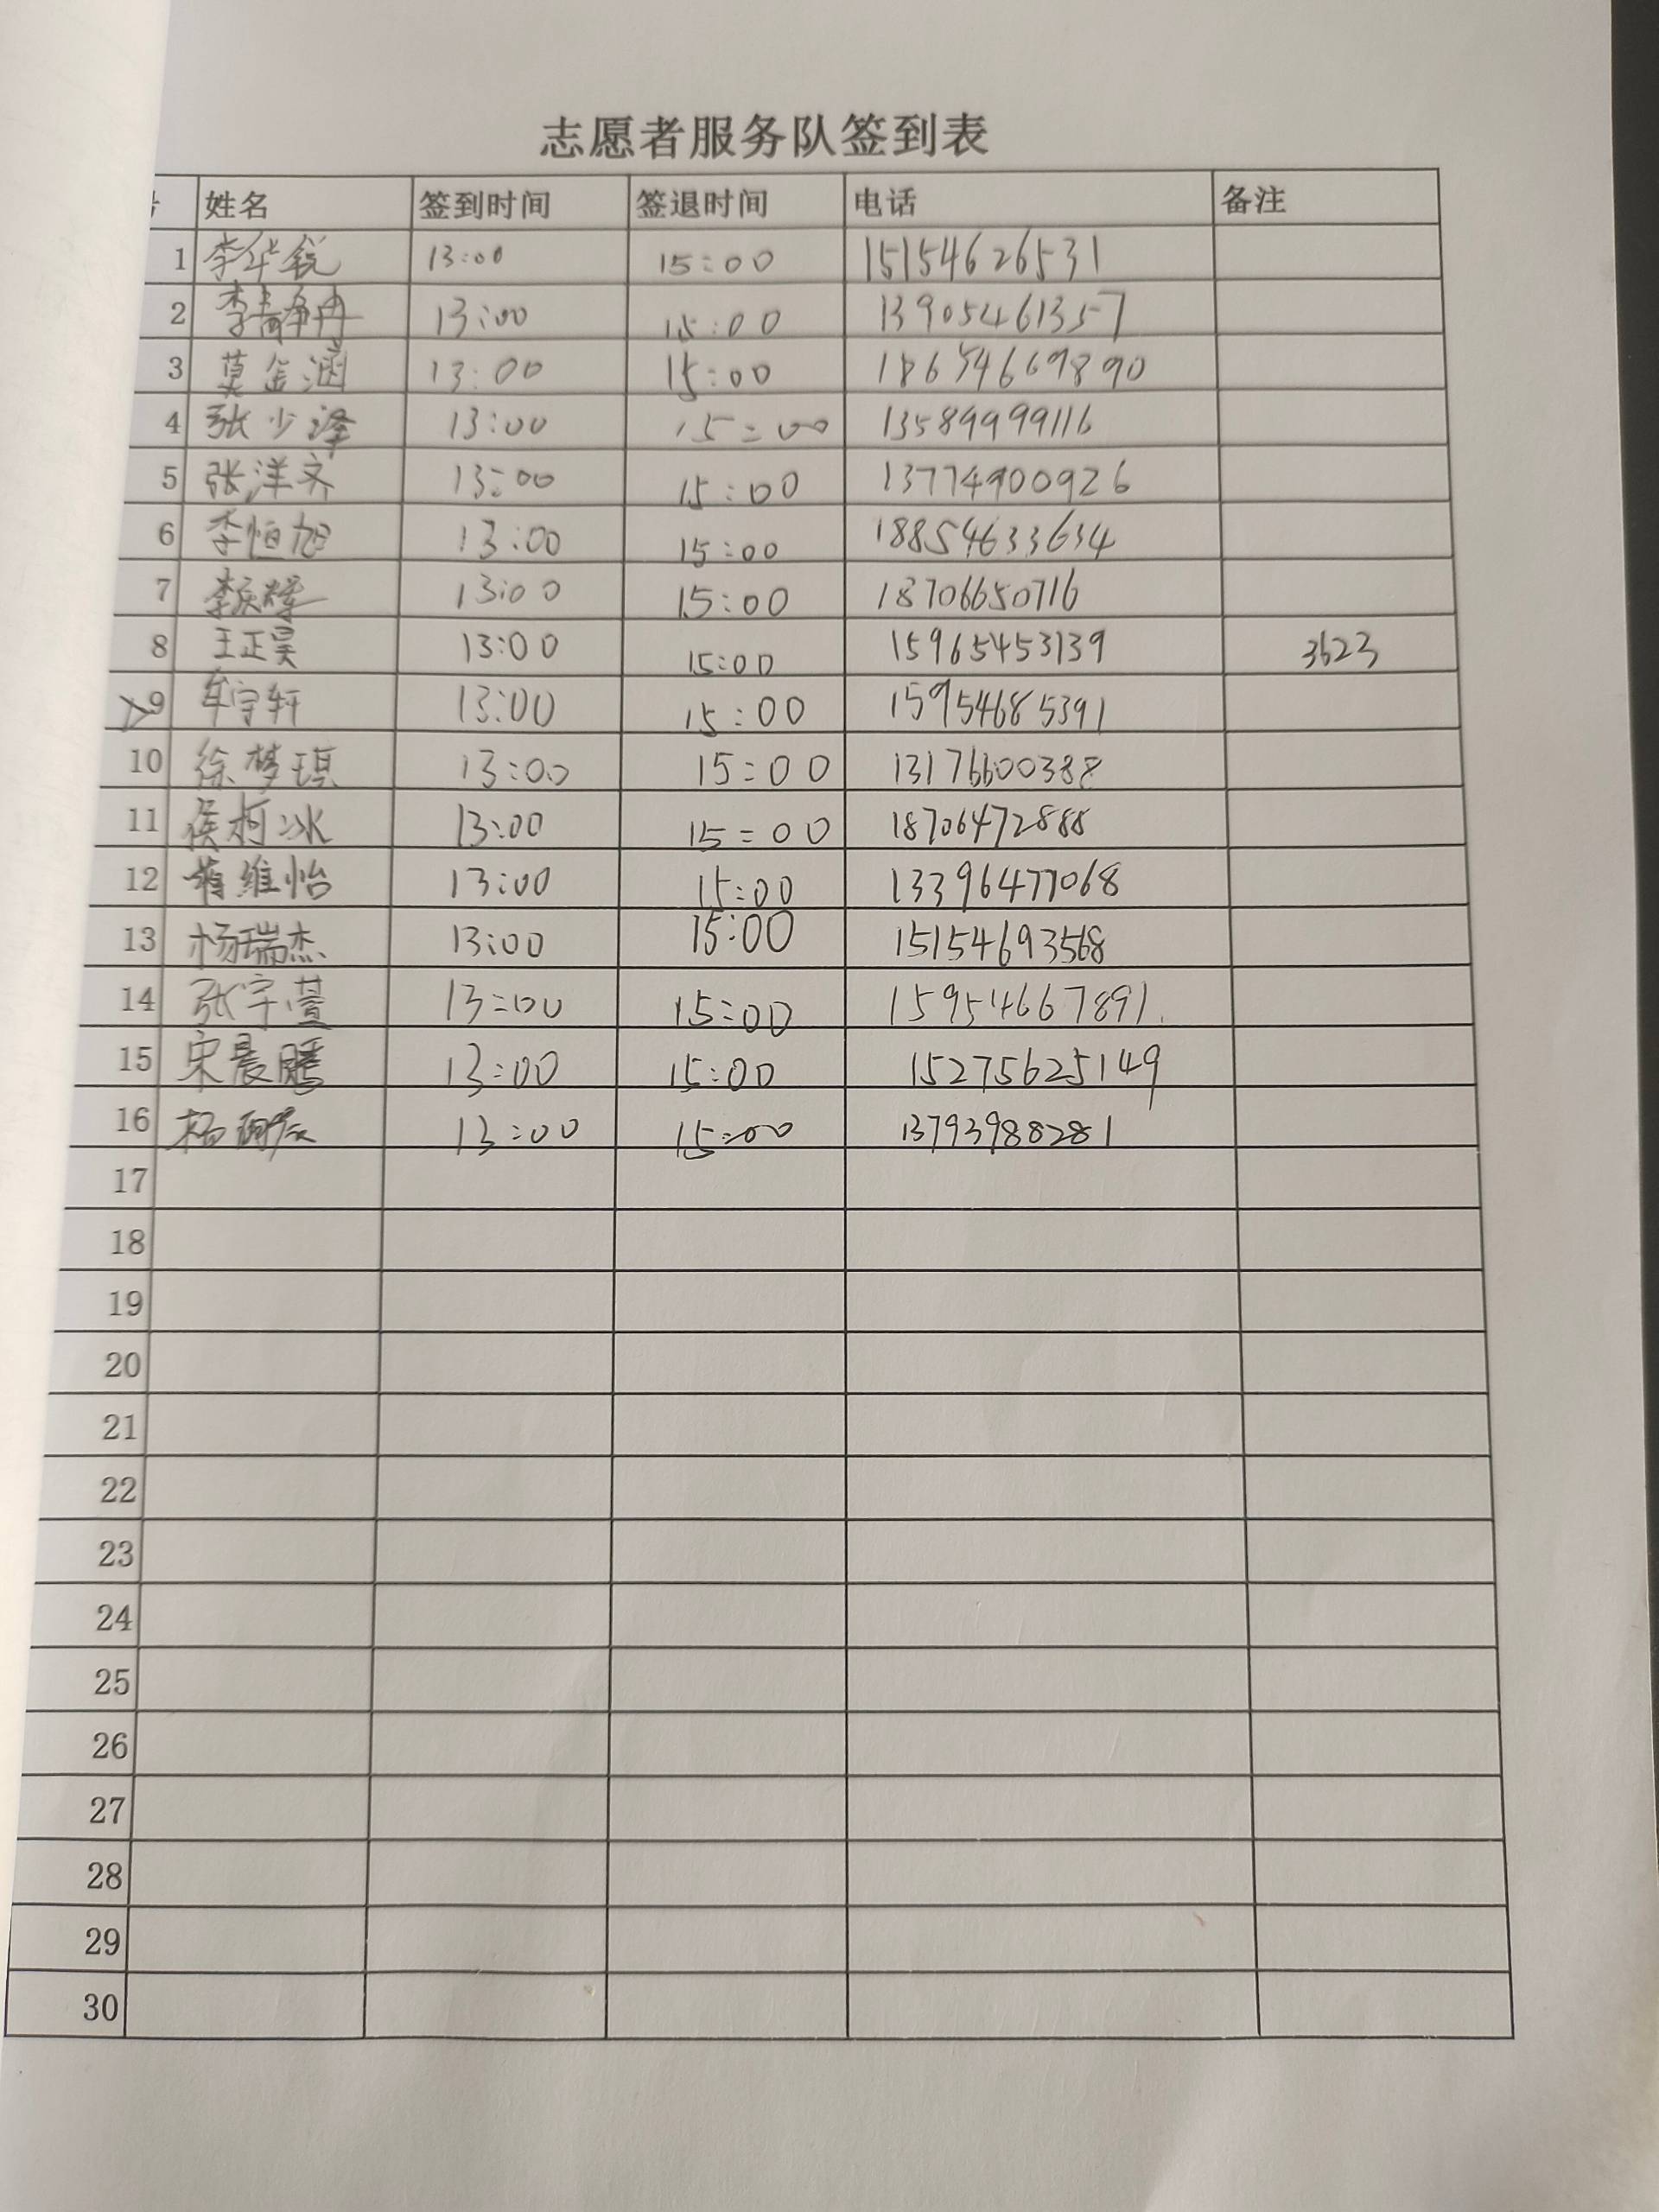 志愿者服务队签到表
姓名 签到时间 签退时间 电话 备注
1 李华锐 13:00 15:00 15154626531
2 李静冉 13:00 15:00 13905461357
3 莫金涵 13:00 15:00 18654669890
4 张少泽 13:00 15:00 13589999116
5 张洋齐 13:00 15:00 13774900926
6 李恒旭 13:00 15:00 18854633634
7 13:00 15:00 18706650716
8 王正昊 13:00 15:00 15965453139 3623
9 牟宇轩 13:00 15:00 15954685391
10 徐梦琪 13:00 15:00 13176600388
11 侯柯冰 13:00 15:00 18706472888
12 维怡 13:00 15:00 13396477068
13 杨瑞杰 13:00 15:00 15154693568
14 张宇萱 13:00 15:00 15954667891
15 宋晨腾 13:00 15:00 15275625149
16 杨 13:00 15:00 13793988281
17
18
19
20
21
22
23
24
25
26
27
28
29
30